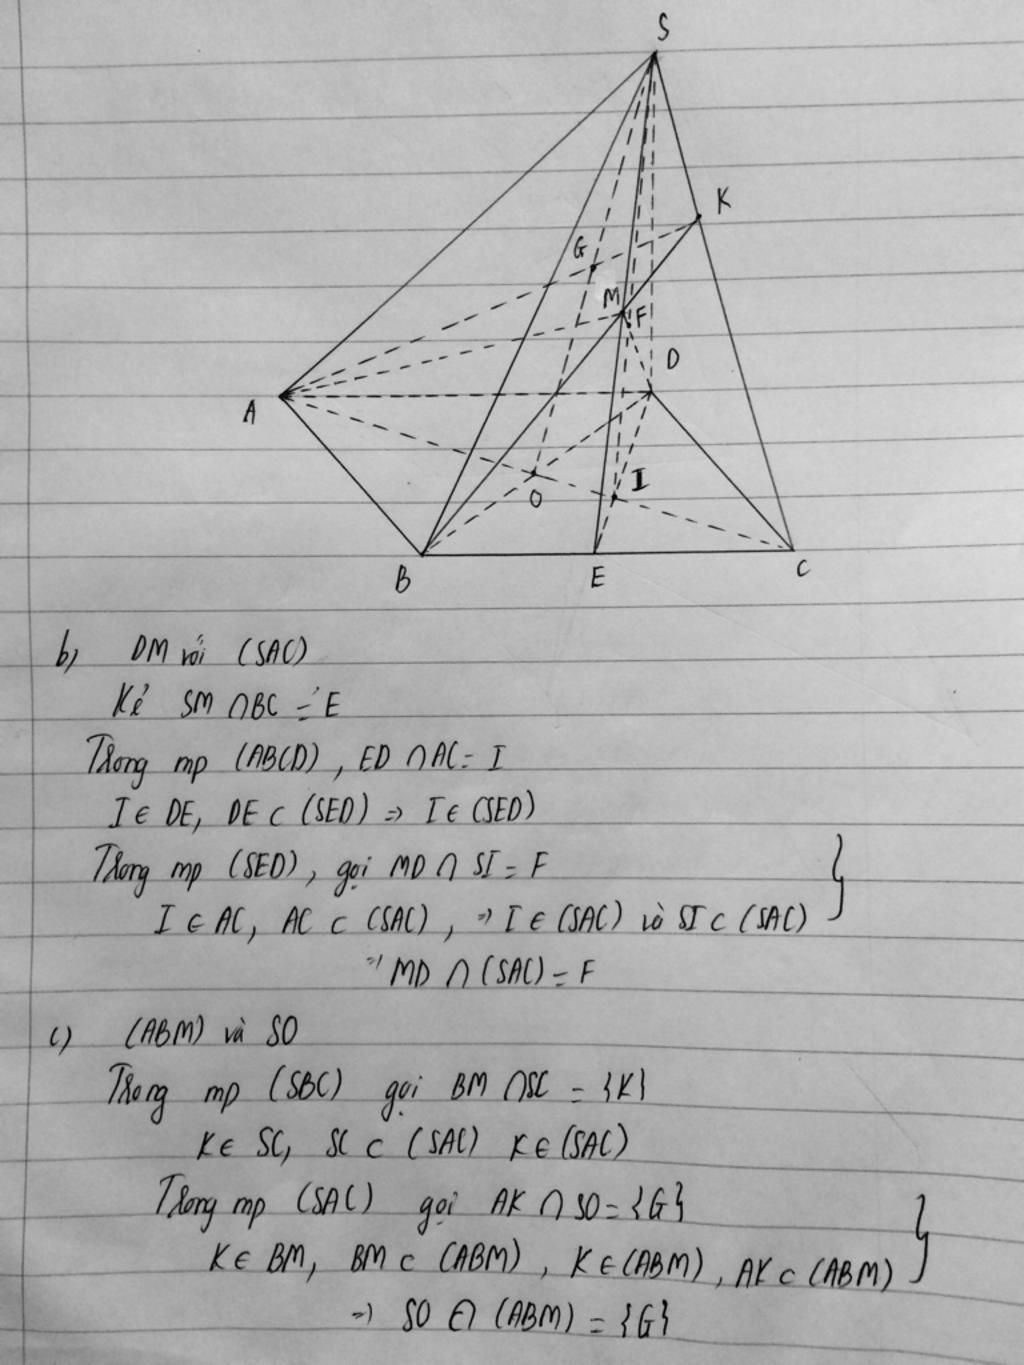 S
K
G
M
F
D
A
I
O
B
E
C
b) DM với (SAC)
Kẻ SM ∩ BC = E
Trong mp (ABCD), ED ∩ AC = I
I ∈ DE, DE ⊂ (SED) => I ∈ (SED)
Trong mp (SED), gọi MD ∩ SI = F
I ∈ AC, AC ⊂ (SAC), => I ∈ (SAC) và SI ⊂ (SAC) }
=> MD ∩ (SAC) = F
c) (ABM) và SO
Trong mp (SBC) gọi BM ∩ SC = {K}
K ∈ SC, SC ⊂ (SAC) K ∈ (SAC)
Trong mp (SAC) gọi AK ∩ SO = {G}
K ∈ BM, BM ⊂ (ABM), K ∈ (ABM), AK ⊂ (ABM) }
=> SO ∩ (ABM) = {G}